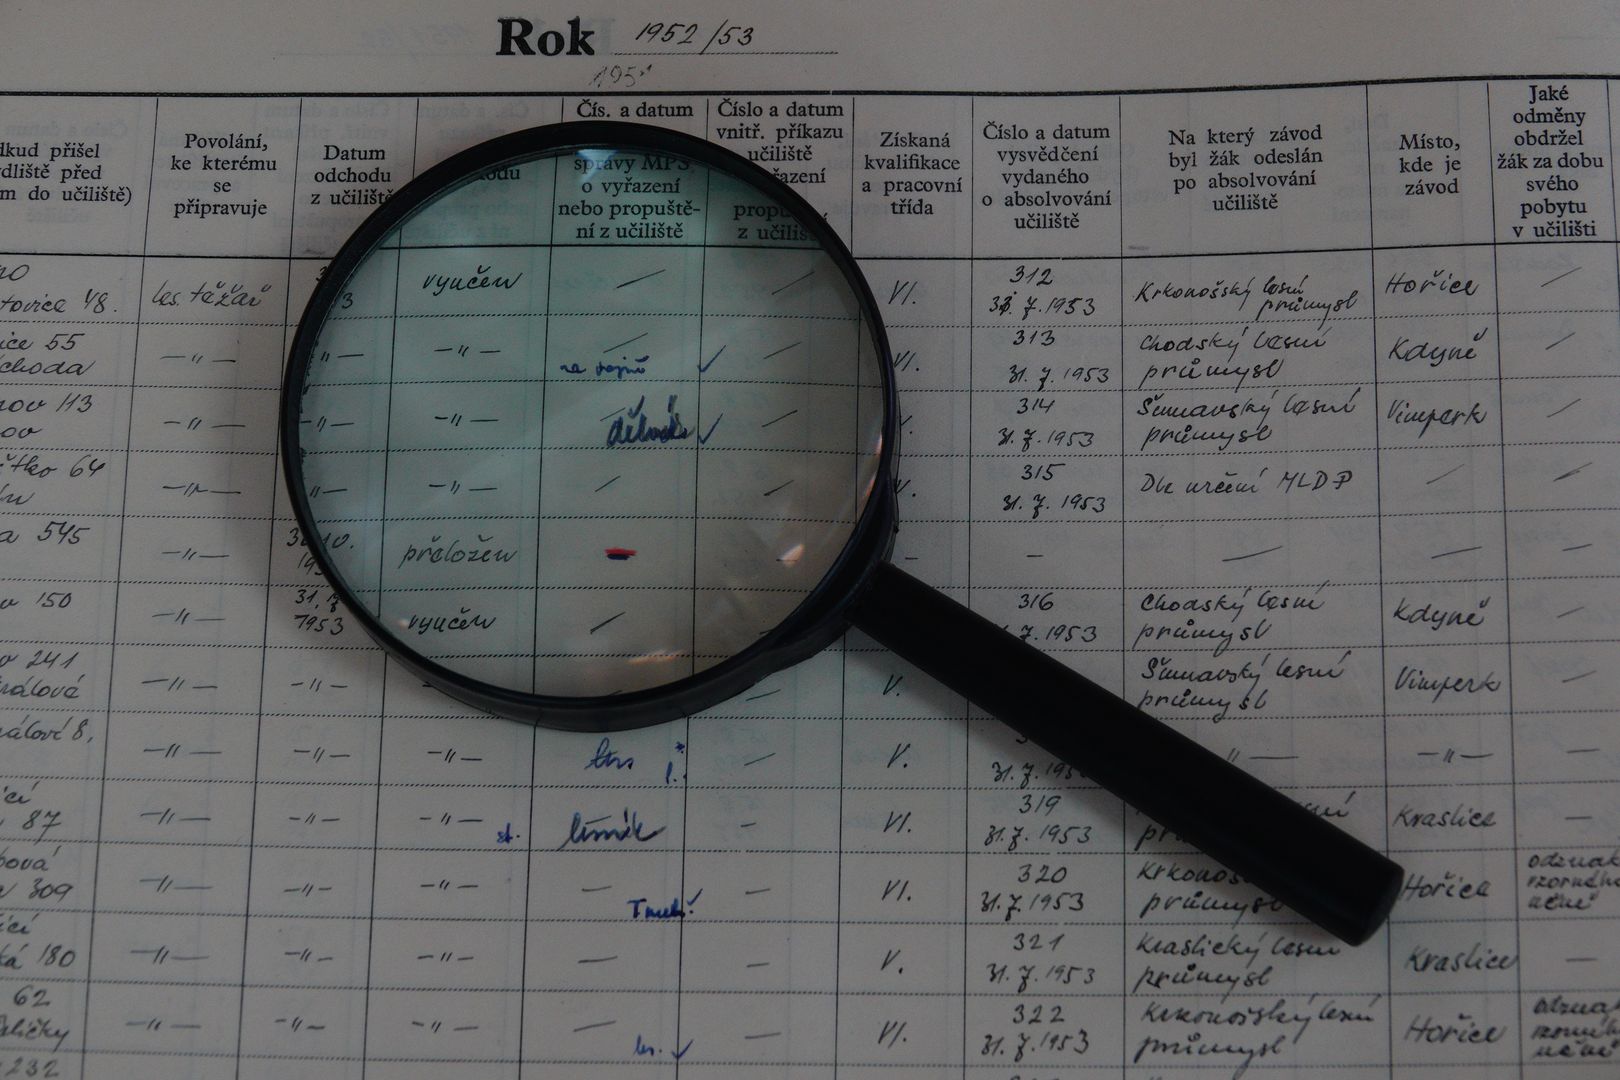 Rok 1952/53
přišel
před
do učiliště)
Povolání,
ke kterému
se
připravuje
Datum
odchodu
z učiliště
Čís. a datum
správy MPS
o vyřazení
nebo propuště-
ní z učiliště
Číslo a datum
vnitř. příkazu
učiliště
z
Získaná
kvalifikace
a pracovní
třída
Číslo a datum
vysvědčení
vydaného
o absolvování
učiliště
Na který závod
byl žák odeslán
po absolvování
učiliště
Místo,
kde je
závod
Jaké
odměny
obdržel
žák za dobu
svého
pobytu
v učilišti
48. les. těžař vyučen — VI. 312 7. 1953 Krkonošský lesní průmysl Hořice —
55 —"— —"— —"— — — VI. 313 31. 7. 1953 Chodský lesní průmysl Kdyně —
113 —"— —"— —"— dělník — V. 314 31. 7. 1953 Šumavský lesní průmysl Vimperk —
64 —"— —"— —"— — — V. 315 31. 7. 1953 Dle určení MLDP — —
545 —"— přeložen — — — — — — —
150 —"— 31. 7. 1953 vyučen — — 316 7. 1953 Chodský lesní průmysl Kdyně —
241 —"— —"— — — V. Šumavský lesní průmysl Vimperk —
8, —"— —"— —"— — V. 31. 7. —"— —"— —
87 —"— —"— —"— — VI. 319 31. 7. 1953 Kraslice —
309 —"— —"— —"— — — VI. 320 31. 7. 1953 průmysl Hořice odznak vzorného učně
180 —"— —"— —"— — — V. 321 31. 7. 1953 Kraslický lesní průmysl Kraslice —
62 —"— —"— —"— — — VI. 322 31. 7. 1953 Krkonošský lesní průmysl Hořice odznak vzorného učně
232